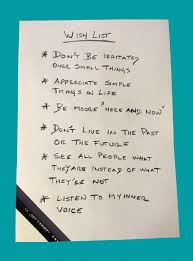 WISH LIST
* DON'T BE IRRITATED
OVER SMALL THINGS
* APPRECIATE SIMPLE
THINGS IN LIFE
* BE MOORE "HERE AND NOW"
* DON'T LIVE IN THE PAST
OR THE FUTURE
* SEE ALL PEOPLE WHAT
THEY'RE INSTEAD OF WHAT
THEY'RE NOT
* LISTEN TO MY INNER
VOICE